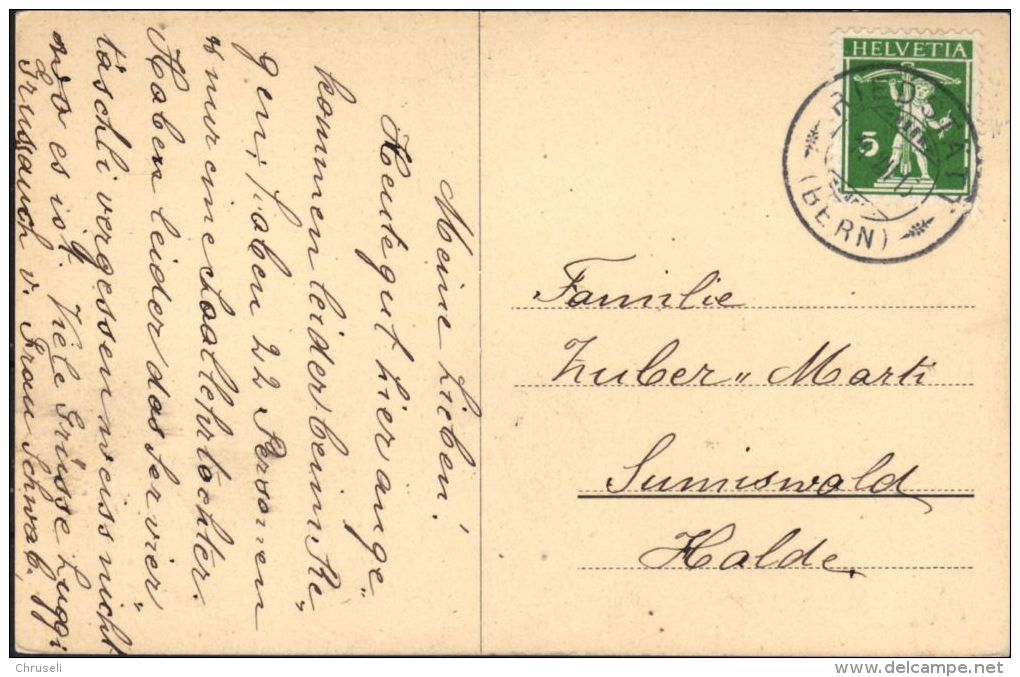 Meine Lieben!
Heute gut hier ange„
kommen leider beim Re„
gen, haben 22 Personen
u nur eine Saallehrtochter.
Haben leider das Servier„
täschli vergessen weiss nicht
wo es ist. Viele Grüsse Luggi
Gruss auch v. Frau Schwab.
HELVETIA
5
RIEDSTÄTT
(BERN)
Familie
Zuber„ Marti
Sumiswald
Halde.
Chruseli
www.delcampe.net